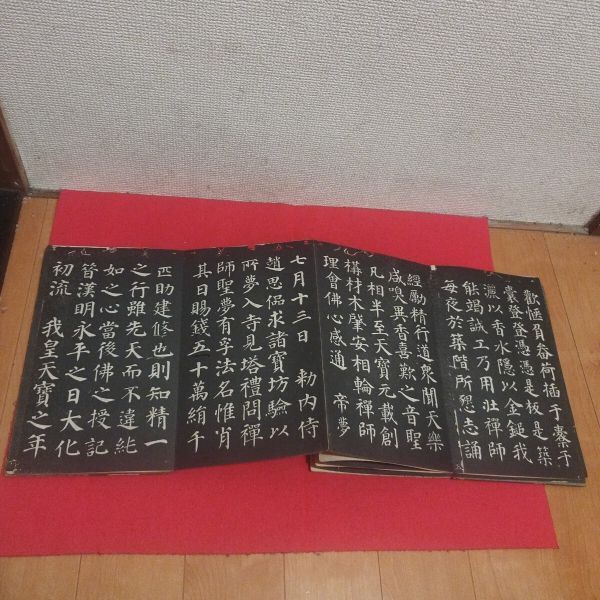 歡愜負畚荷插于橐于
囊登登憑憑是板是築
灑以香水隱以金鎚我
能竭誠工乃用壯禪師
每夜於築階所懇志誦
經勵精行道衆聞天樂
咸嗅異香喜歎之音聖
凡相半至天寶元載創
構材木肇安相輪禪師
理會佛心感通 帝夢
七月十三日 勑內侍
趙思偘求諸寶坊驗以
所夢入寺見塔禮問禪
師聖夢有孚法名惟肖
其日賜錢五十萬絹千
匹助建修也則知精一
之行雖先天而不違純
如之心當後佛之授記
昔漢明永平之日大化
初流 我皇天寶之年